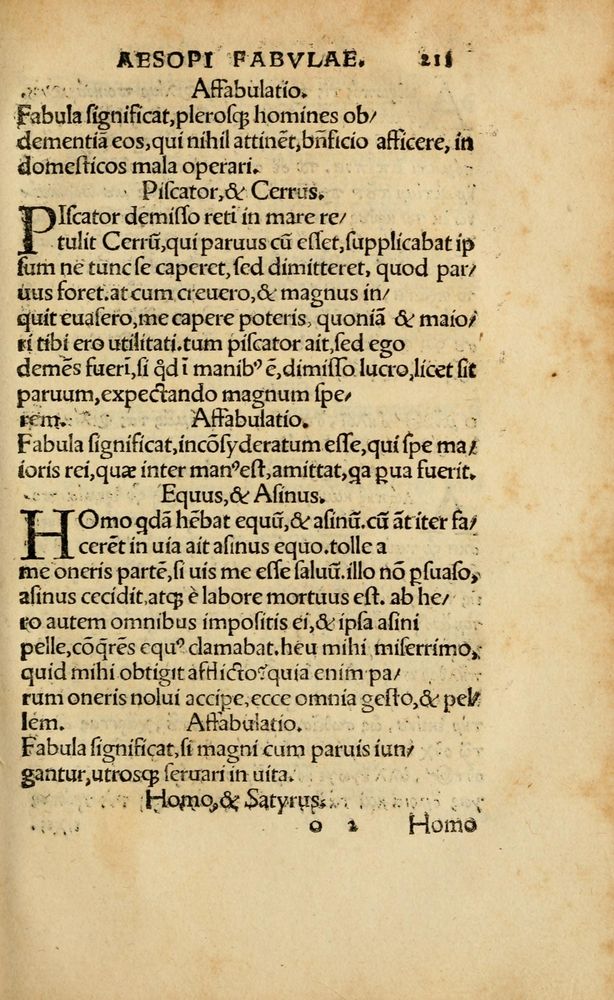 AESOPI FABVLAE. 211
Affabulatio.
Fabula ſignificat,pleroſq; homines ob/
dementiā eos,qui nihil attinēt,bn̄ficio afficere, in
domeſticos mala operari.
Piſcator,& Cerrus.
PIſcator demiſſo reti in mare re/
tulit Cerrū,qui paruus cū eſſet,ſupplicabat ip
ſum ne tunc ſe caperet,ſed dimitteret, quod par/
uus foret.at cum creuero,& magnus in/
quit euaſero,me capere poteris, quoniā & maio/
ri tibi ero utilitati.tum piſcator ait,ſed ego
demēs fueri,ſi qd ī manibꝰ ē,dimiſſo lucro,licet ſit
paruum,expectando magnum ſpe/
rem. Affabulatio.
Fabula ſignificat,incōſyderatum eſſe,qui ſpe ma/
ioris rei,quæ inter manꝰeſt,amittat,qa pua fuerit.
Equus,& Aſinus.
HOmo qdā hēbat equū,& aſinū.cū āt iter fa/
cerēt in uia ait aſinus equo.tolle a
me oneris partē,ſi uis me eſſe ſaluū.illo nō pſuaſo,
aſinus cecidit,atq; è labore mortuus eſt. ab he/
ro autem omnibus impoſitis ei,& ipſa aſini
pelle,cōqrēs equꝰ clamabat.heu mihi miſerrimo,
quid mihi obtigit afflicto?quia enim pa/
rum oneris nolui accipe,ecce omnia geſto,& pel/
lem. Affabulatio.
Fabula ſignificat,ſi magni cum paruis iun/
gantur,utroſq; ſeruari in uita.
Homo,& Satyrus.
o 2 Homo